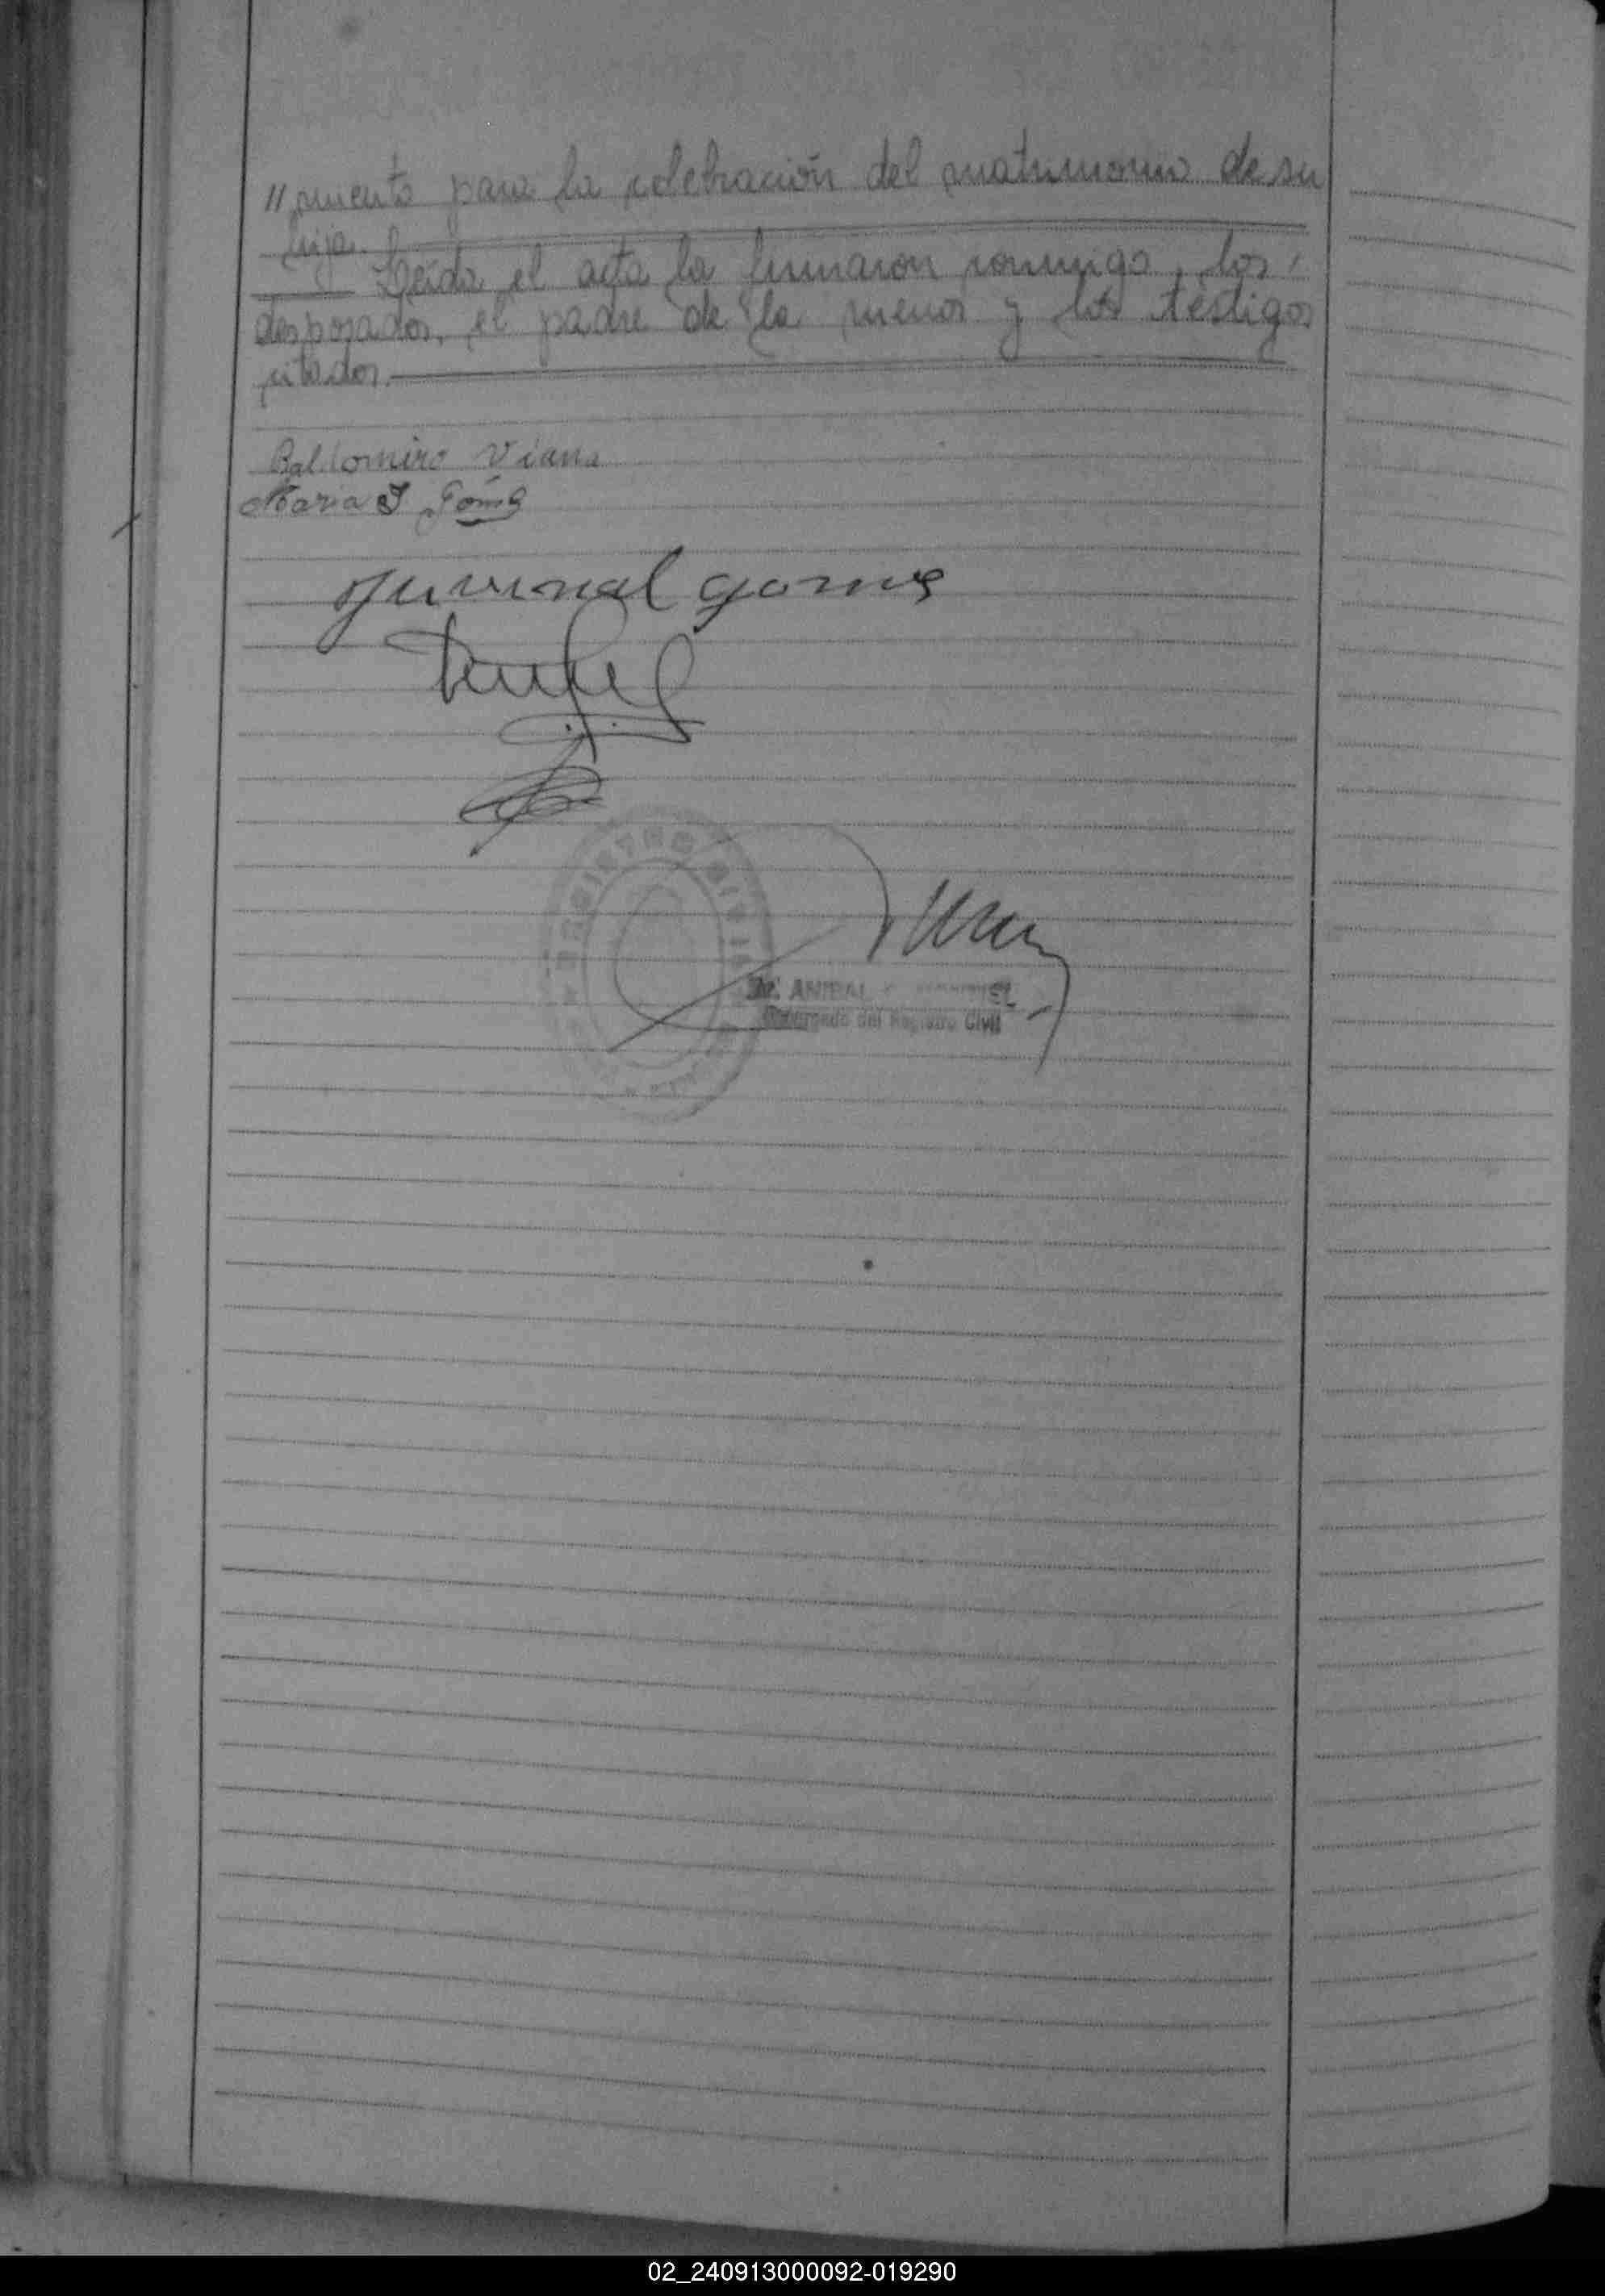 "miento para la celebración del matrimonio de su
hija.
Leída el acta la firmaron conmigo, los
desposados, el padre de la menor y los testigos
citados.
Baldomiro Viana
Maria I Gómez
Juvenal gomes
REGISTRO CIVIL
Dr. ANIBAL
Encargado del Registro Civil
02_240913000092-019290